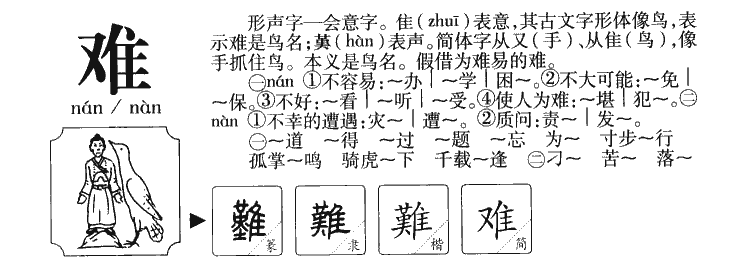 难
nán / nàn
形声字—会意字。隹（zhuī）表意，其古文字形体像鸟，表
示难是鸟名；𦰩（hàn）表声。简体字从又（手）、从隹（鸟），像
手抓住鸟。本义是鸟名。假借为难易的难。
㊀nán ①不容易：～办｜～学｜困～。②不大可能：～免｜
～保。③不好：～看｜～听｜～受。④使人为难：～堪｜犯～。㊁
nàn ①不幸的遭遇：灾～｜遭～。②质问：责～｜发～。
㊀～道 ～得 ～过 ～题 ～忘 为～ 寸步～行
孤掌～鸣 骑虎～下 千载～逢 ㊁刁～ 苦～ 落～
難 篆 難 隶 難 楷 难 简